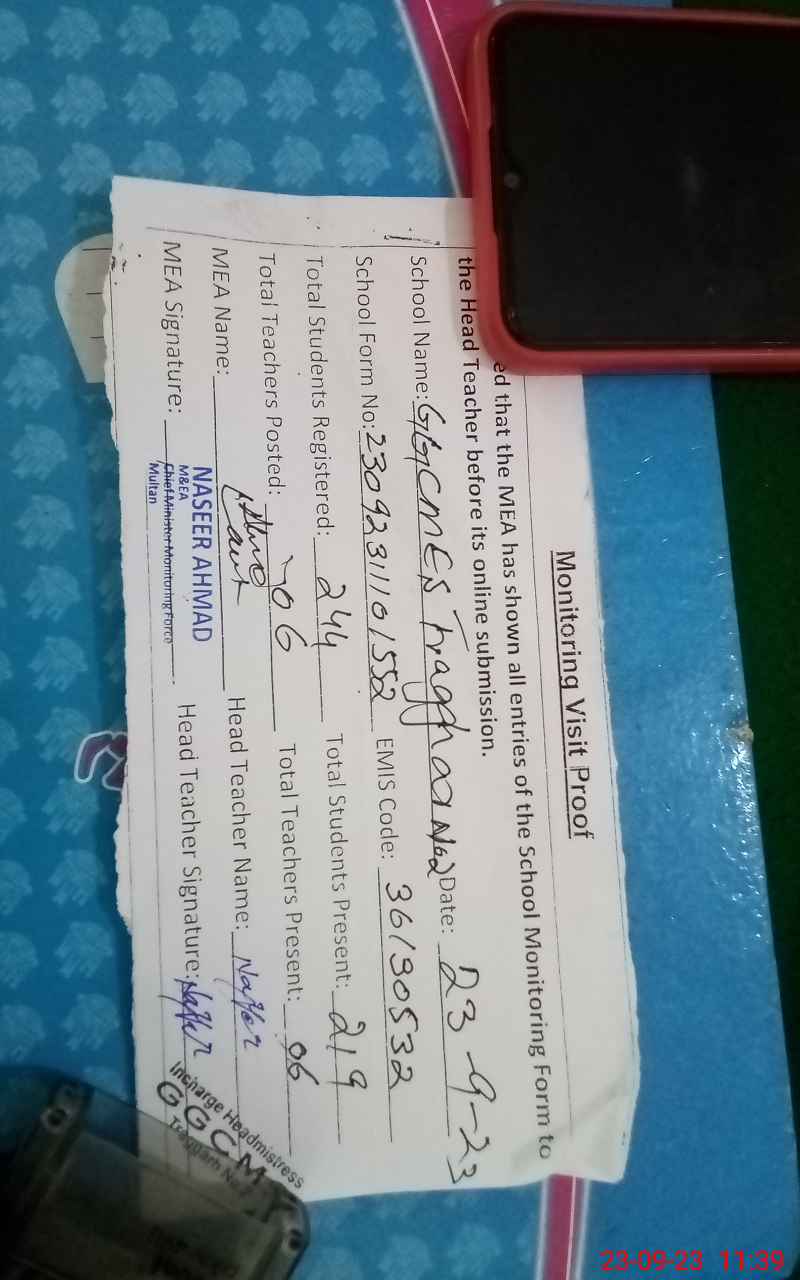 Monitoring Visit Proof
ed that the MEA has shown all entries of the School Monitoring Form to
the Head Teacher before its online submission.
School Name: GGCMES Tragghar No2 Date: 23-9-23
School Form No: 2309231101552 EMIS Code: 36130532
Total Students Registered: 244 Total Students Present: 219
Total Teachers Posted: 06 Total Teachers Present: 06
MEA Name: Head Teacher Name:
MEA Signature: Head Teacher Signature:
NASEER AHMAD
M&EA
Chief Minister Monitoring Force
Multan
Incharge Headmistress
GGCM
Traggarh No.2
23-09-23 11:39